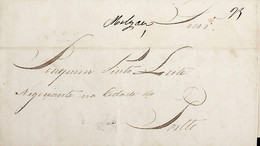 Melgaço
Snr.
Joaquim Pinto Leite
Negociante na Cidade do
Porto